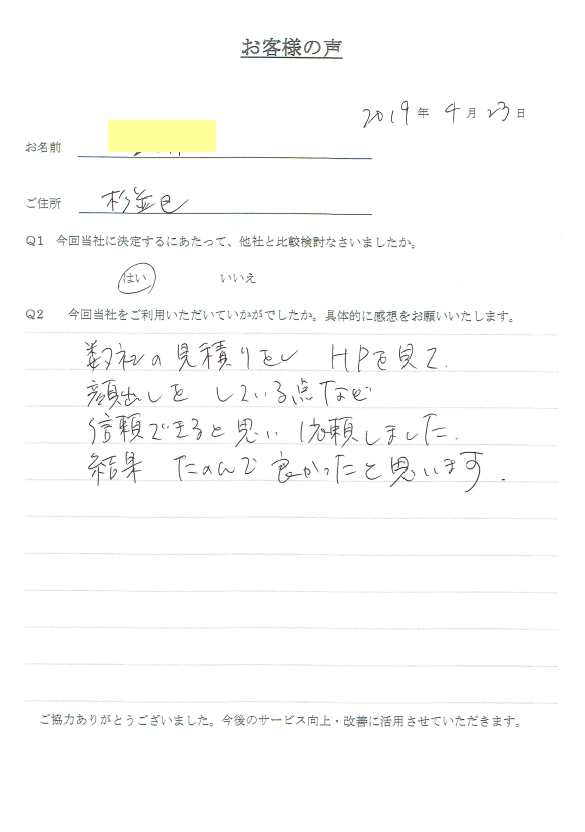 お客様の声
2019年 4月 23日
お名前
ご住所 杉並区
Q1 今回当社に決定するにあたって、他社と比較検討なさいましたか。
はい いいえ
Q2 今回当社をご利用いただいていかがでしたか。具体的に感想をお願いいたします。
数社の見積りをし HPを見て.
顔出しを している点など
信頼できると思い 依頼しました.
結果 たのんで良かったと思います.
ご協力ありがとうございました。今後のサービス向上・改善に活用させていただきます。